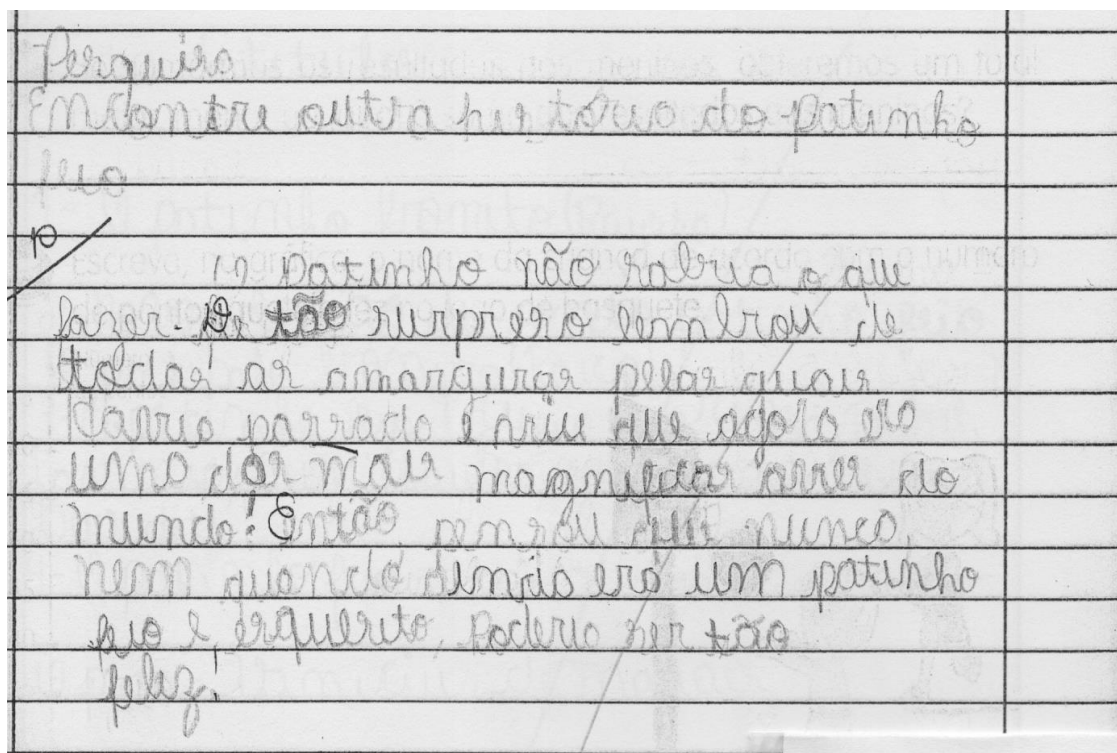 Pesquisa
Encontre outra história do patinho
feio
O patinho não sabia o que
fazer. De tão surpreso lembrou de
todas as amarguras pelas quais
Havia passado e viu que agora era
uma das mais magnificas aves do
mundo! Então pensou que nunca,
nem quando ainda era um patinho
feio e, esquisito, poderia ser tão
feliz!